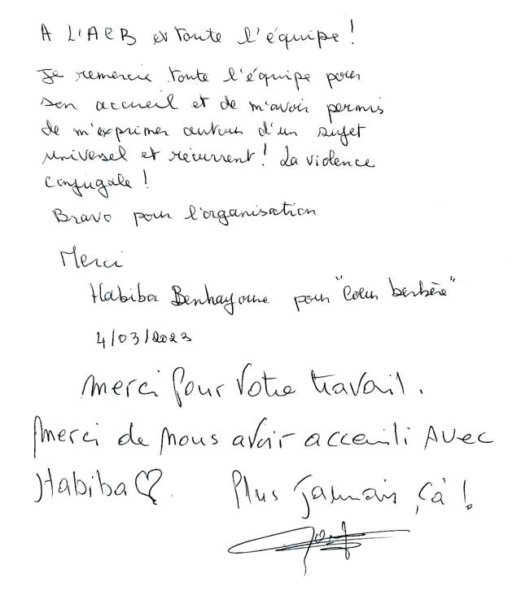 A L'ACB et toute l'équipe !
Je remercie toute l'équipe pour
son accueil et de m'avoir permis
de m'exprimer autour d'un sujet
universel et récurrent ! La violence
conjugale !
Bravo pour l'organisation
Merci
Habiba Benhayoune pour "Coeur berbère"
4/03/2023
Merci pour votre travail.
Merci de nous avoir acceuili avec
Habiba♡. Plus jamais ça !